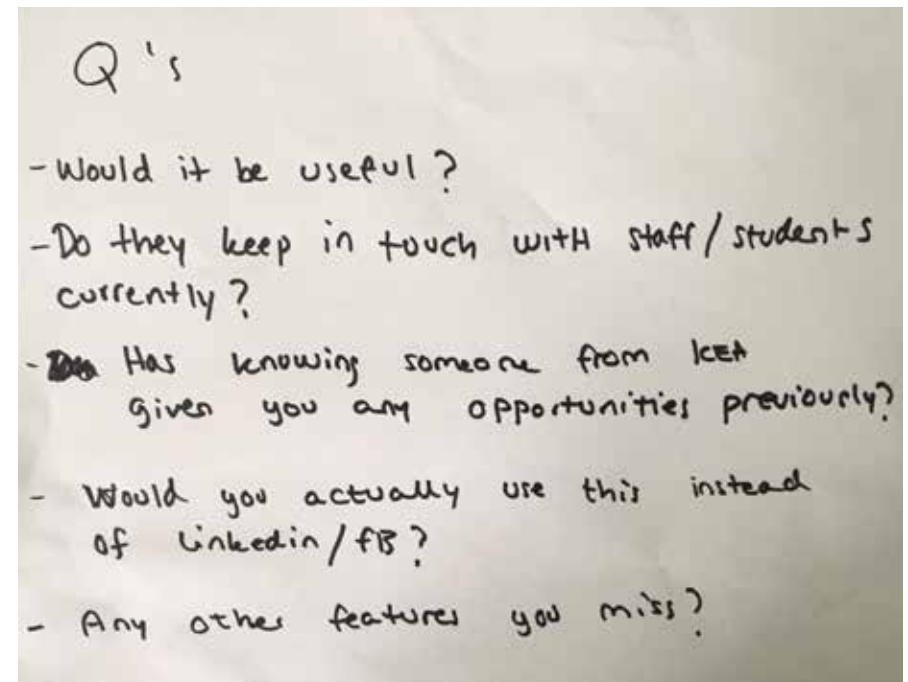 Q's
- Would it be useful?
- Do they keep in touch with staff/students
currently?
- Has knowing someone from KEA
given you any opportunities previously?
- Would you actually use this instead
of Linkedin/FB?
- Any other features you miss?